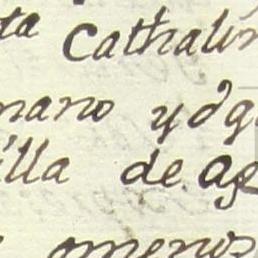 ta Cathalin
mano y dg
illa de ag
omenos